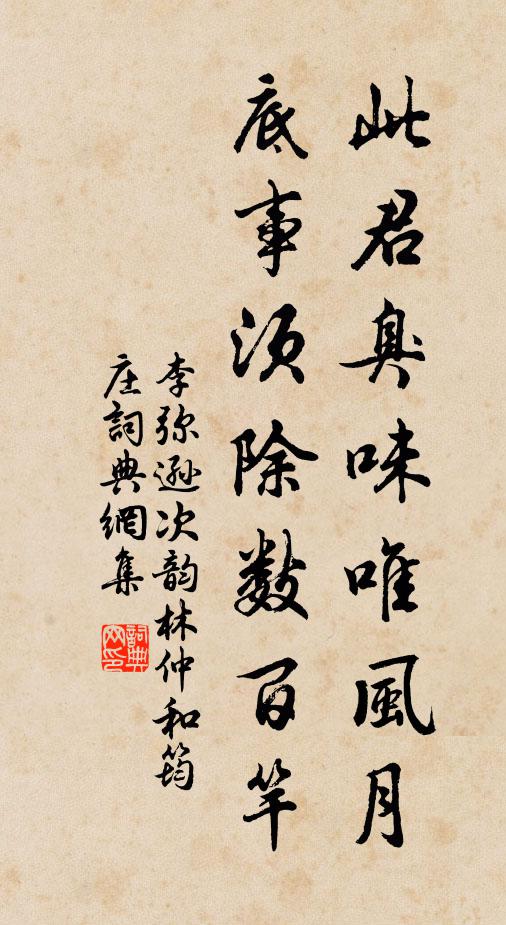 此君臭味唯風月
底事須除數百竿
李弥遜次韵林仲和筠
庄詞典網集
詞典网印